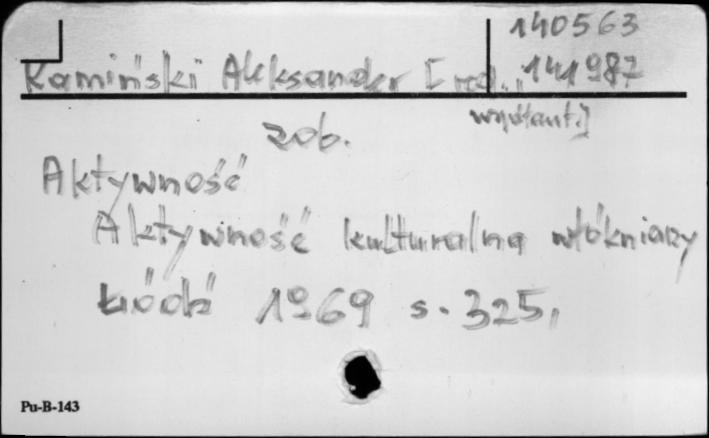 140563
Kamiński Aleksander [red., 141987
współaut.]
zob.
Aktywność
Aktywność kulturalna włókniarzy
Łódź 1969 s. 325,
Pu-B-143